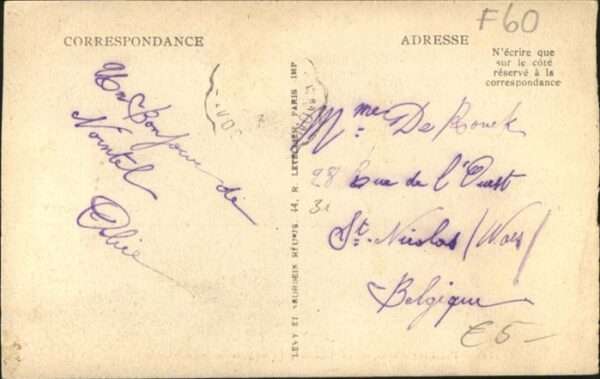 F60
CORRESPONDANCE
ADRESSE
N'écrire que
sur le côté
réservé à la
correspondance
Un Bonjour de
Nointel
Mme De
28 Rue de l'Ouest
31
St. Nicolas / Waes /
Belgique
€5-
LEVY ET NEURDEIN RÉUNIS, 44, R. LETELLIER, PARIS IMP